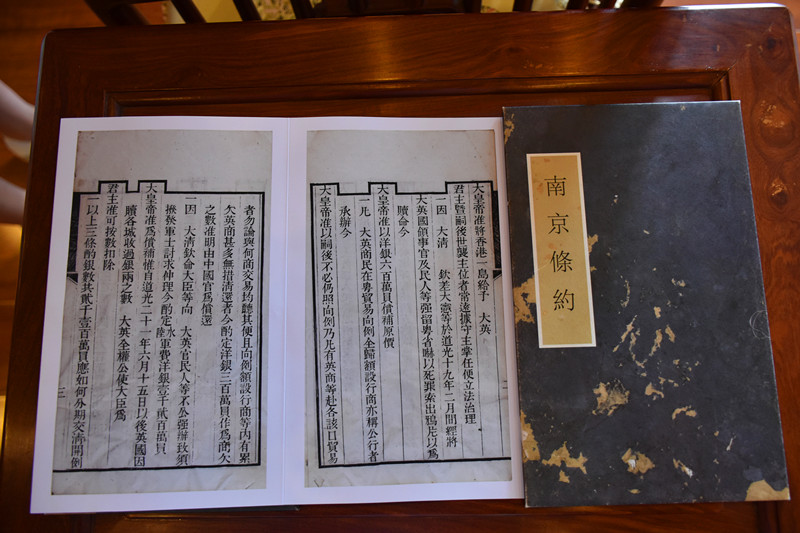 南京條約
大皇帝准將香港一島給予 大英
君主暨嗣後世襲主位者常遠據守主掌任便立法治理
一因 大清 欽差大憲等於道光十九年二月間經將
大英國領事官及民人等強留粵省嚇以死罪索出鴉片以為
贖命今
大皇帝准以洋銀六百萬員償補原價
一凡 大英商民在粵貿易向例全歸額設行商亦稱公行者
承辦今
大皇帝准以嗣後不必仍照向例乃凡有英商等赴各該口貿易
者勿論與何商交易均聽其便且向例額設行商等內有累
欠英商甚多無措清還者今酌定洋銀三百萬員作為商欠
之數准明由中國官為償還
一因 大清欽命大臣等向 大英官民人等不公強辦致須
撥發軍士討求伸理今酌定水軍費洋銀壹千貳百萬員
大皇帝准為償補惟自道光二十一年六月十五日以後英國因
贖各城收過銀兩之數 大英全權公使大臣為
君主准可按數扣除
一以上三條酌銀數共貳千壹百萬員應如何分期交清開列
三